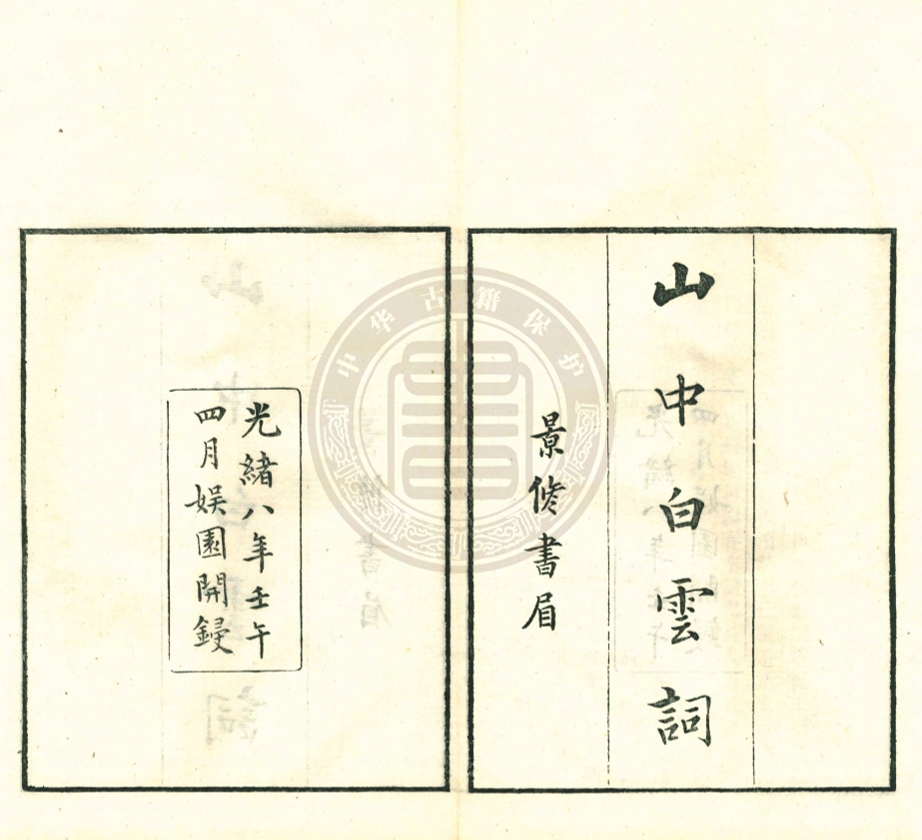 山中白雲詞
景修書眉
光緒八年壬午
四月娱園開鋟
中华古籍保护